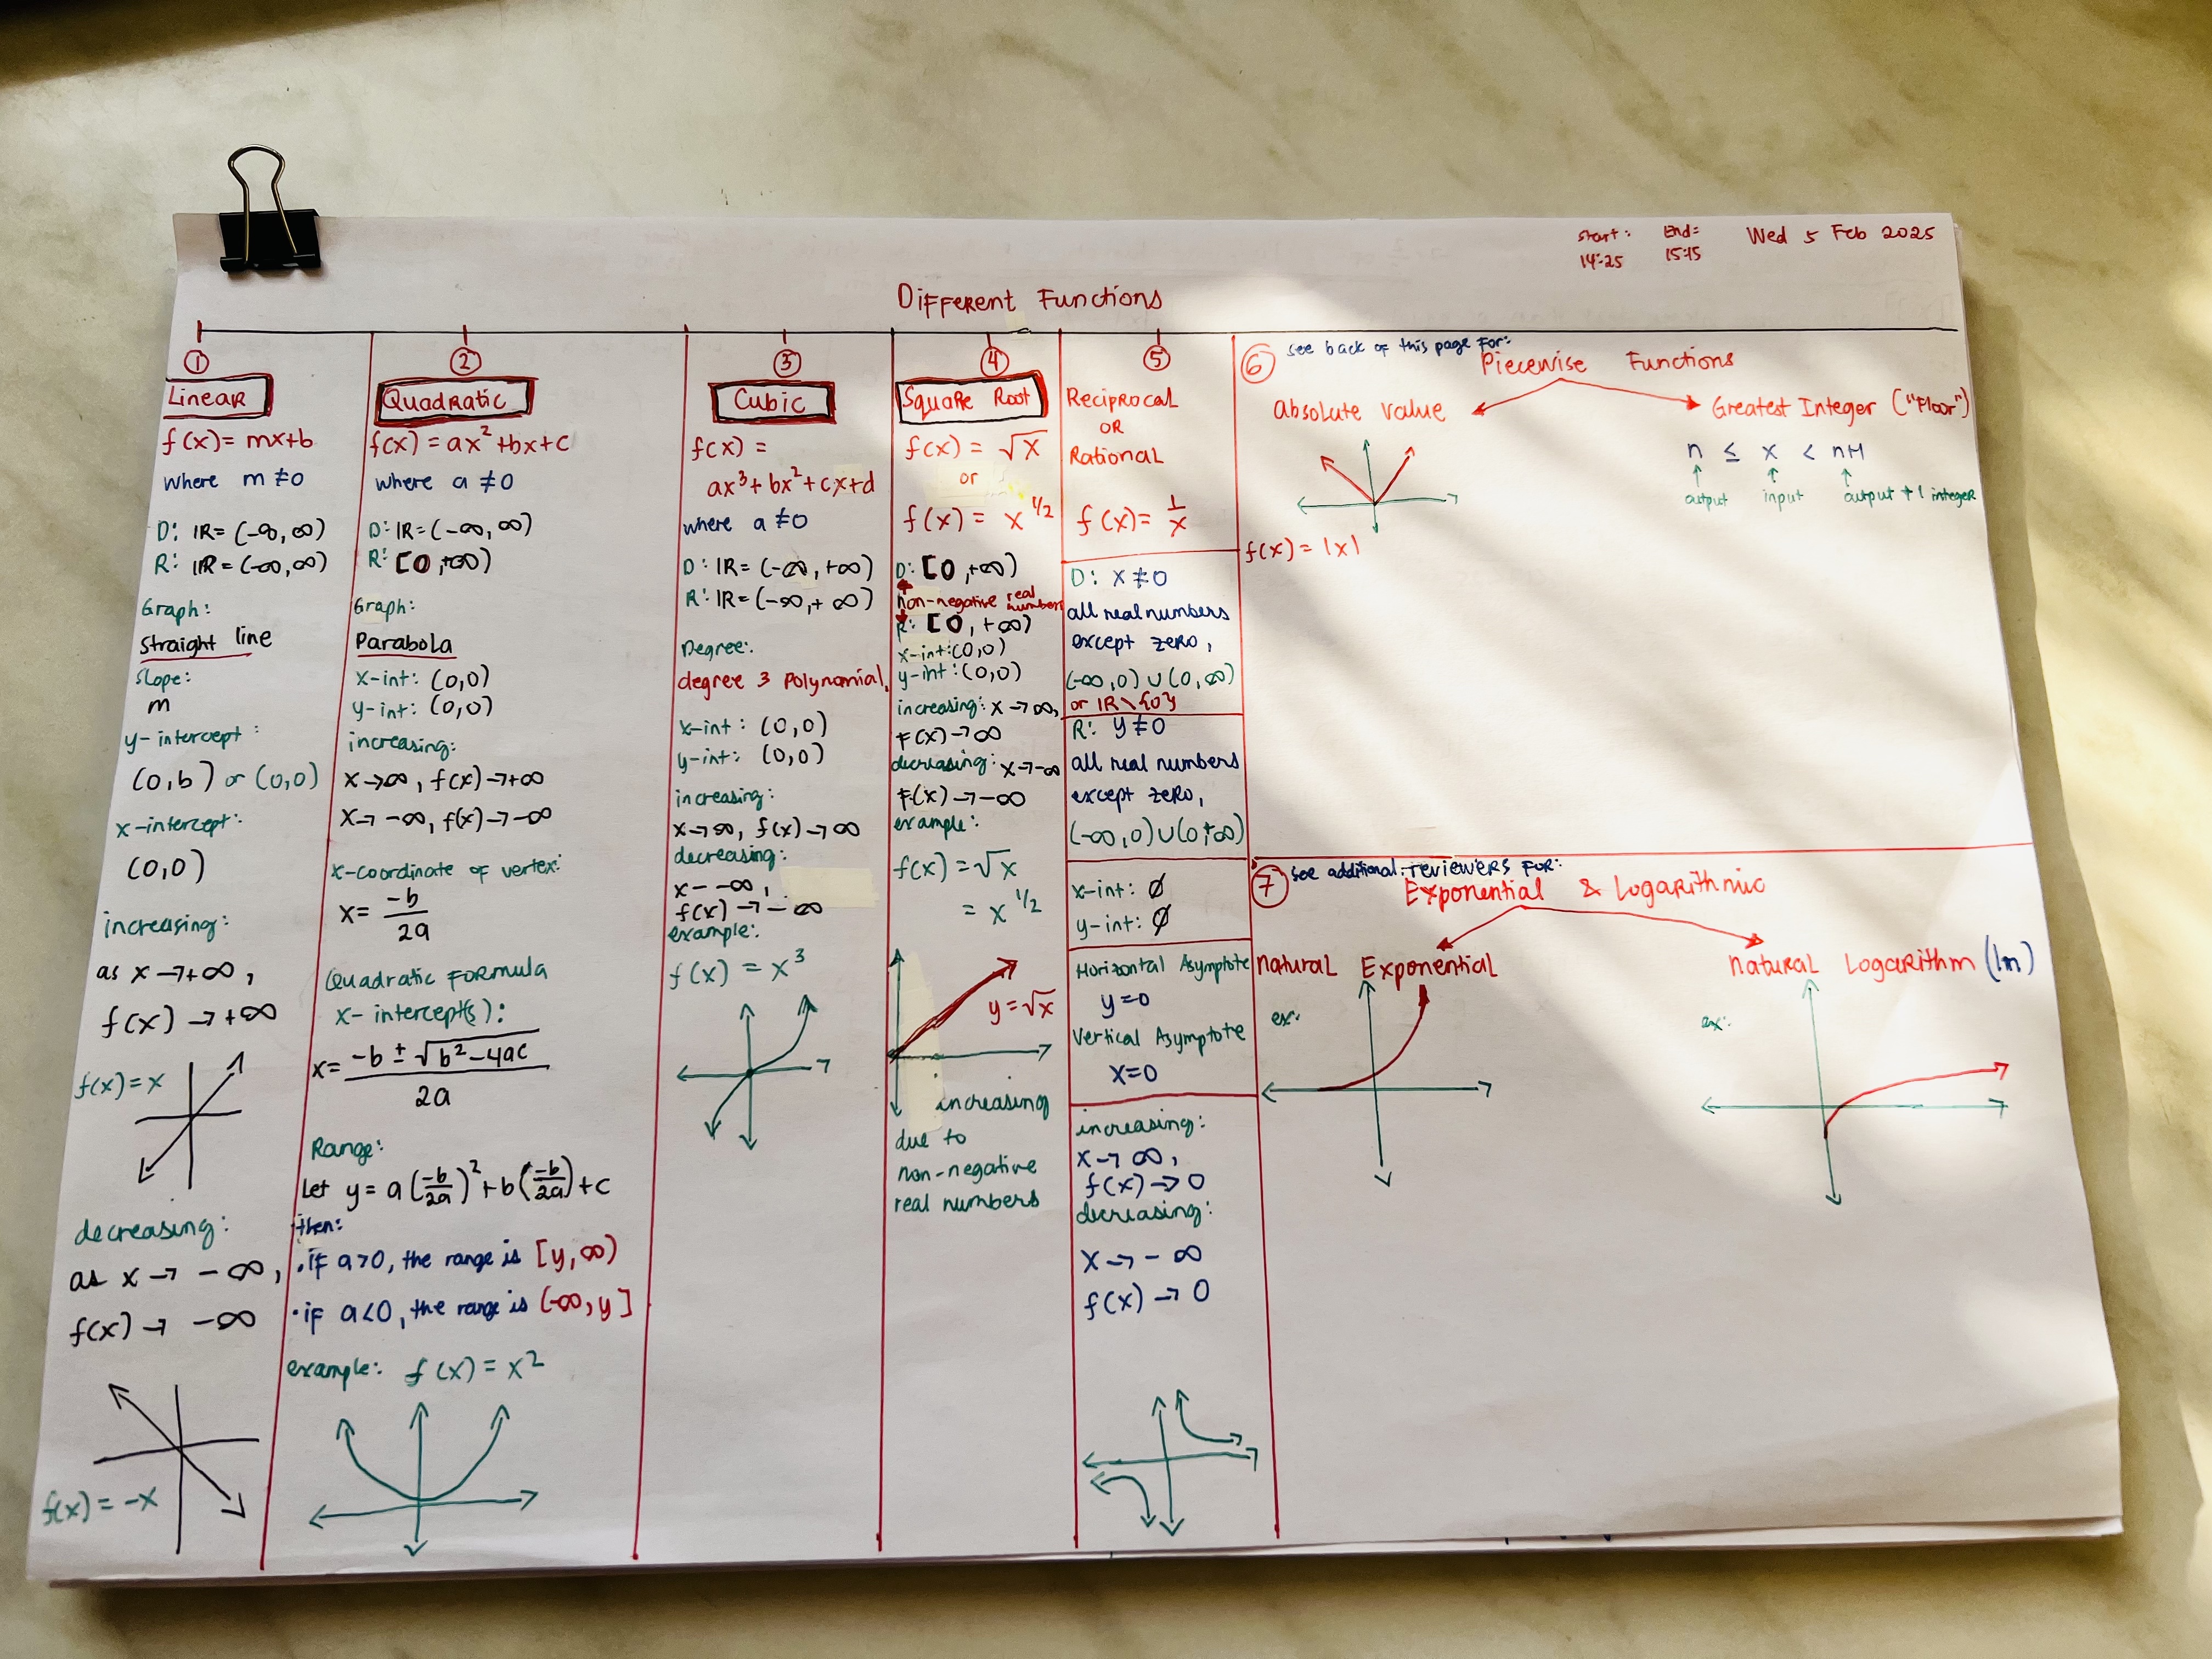 Start: End: Wed 5 Feb 2025
14:25 15:15
Different Functions
①
Linear
f(x) = mx+b
where m ≠ 0
D: IR = (-∞, ∞)
R: IR = (-∞, ∞)
Graph:
Straight line
Slope:
m
y-intercept:
(0,b) or (0,0)
x-intercept:
(0,0)
increasing:
as x → +∞,
f(x) → +∞
f(x) = x
decreasing:
as x → -∞,
f(x) → -∞
f(x) = -x
②
Quadratic
f(x) = ax² + bx + c
where a ≠ 0
D: IR = (-∞, ∞)
R: [0, +∞)
Graph:
Parabola
x-int: (0,0)
y-int: (0,0)
increasing:
x → ∞, f(x) → +∞
x → -∞, f(x) → -∞
x-coordinate of vertex:
x = -b/2a
Quadratic Formula
x-intercept(s):
x = -b ± √b² - 4ac / 2a
Range:
Let y = a(-b/2a)² + b(-b/2a) + c
then:
• if a > 0, the range is [y, ∞)
• if a < 0, the range is (-∞, y]
example: f(x) = x²
③
Cubic
f(x) =
ax³ + bx² + cx + d
where a ≠ 0
D: IR = (-∞, +∞)
R: IR = (-∞, + ∞)
Degree:
degree 3 polynomial,
x-int: (0,0)
y-int: (0,0)
increasing:
x → ∞, f(x) → ∞
decreasing:
x - -∞,
f(x) → -∞
example:
f(x) = x³
④
Square Root
f(x) = √x
or
f(x) = x^1/2
D: [0, +∞)
non-negative real numbers
R: [0, +∞)
x-int: (0,0)
y-int: (0,0)
increasing: x → ∞,
F(x) → ∞
decreasing: x → -∞
F(x) → -∞
example:
f(x) = √x
= x^1/2
y = √x
increasing
due to
non-negative
real numbers
⑤
Reciprocal
OR
Rational
f(x) = 1/x
D: x ≠ 0
all real numbers
except zero,
(-∞, 0) ∪ (0, ∞)
or IR \ {0}
R: y ≠ 0
all real numbers
except zero,
(-∞, 0) ∪ (0, +∞)
x-int: ∅
y-int: ∅
Horizontal Asymptote
y = 0
Vertical Asymptote
x = 0
increasing:
x → ∞,
f(x) → 0
decreasing:
x → - ∞
f(x) → 0
⑥ see back of this page for:
Piecewise Functions
absolute value
f(x) = |x|
Greatest Integer ("Floor")
n ≤ x < n+1
output input output + 1 integer
⑦ see additional reviewers for:
Exponential & Logarithmic
natural Exponential
ex:
natural Logarithm (ln)
ex: